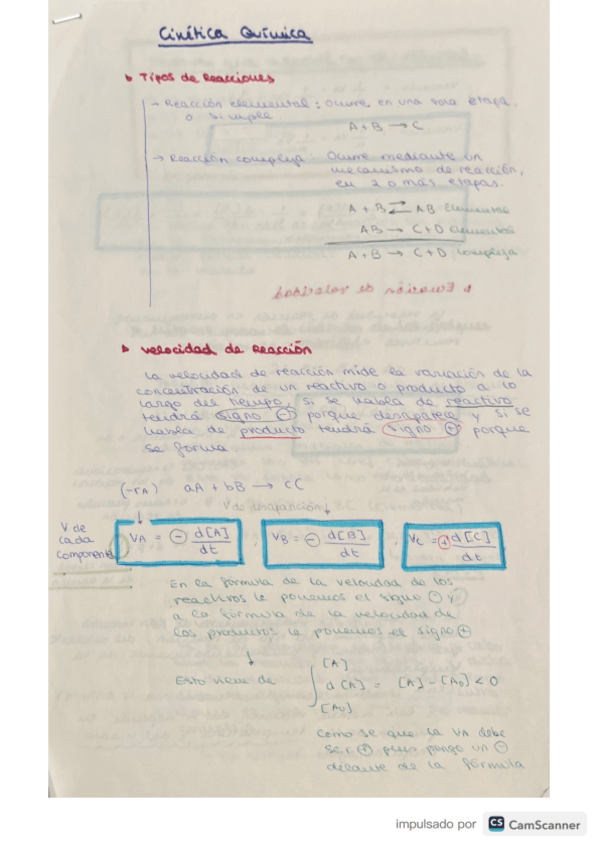 Cinética Química
Tipos de Reacciones
→ Reacción elemental: Ocurre en una sola etapa.
o simple
A + B → C
→ Reacción compleja: Ocurre mediante un
mecanismo de reacción,
en 2 o más etapas.
A + B ⇄ AB Elemental
AB → C + D elemental
A + B → C + D compleja
Velocidad de Reacción
La velocidad de reacción mide la variación de la
concentración de un reactivo o producto a lo
largo del tiempo, si se habla de reactivo
tendrá signo ⊖ porque desaparece y si se
habla de producto tendrá signo ⊕ porque
se forma.
(-rA) aA + bB → cC
V de desaparición
V de
cada
componente
VA = ⊖ d[A]/dt ; VB = ⊖ d[B]/dt ; VC = ⊕ d[C]/dt
En la fórmula de la velocidad de los
reactivos le ponemos el signo ⊖ y
a la fórmula de la velocidad de
los productos le ponemos el signo ⊕
↓
Esto viene de ∫[A₀][A] d[A] = [A] - [A₀] < 0
Como se que la VA debe
ser ⊕ pues pongo un ⊖
delante de la fórmula
impulsado por CS CamScanner